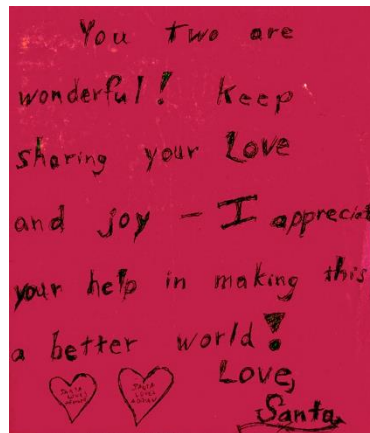 You two are
wonderful! Keep
sharing your Love
and joy – I appreciat
your help in making this
a better world!
Love,
Santa